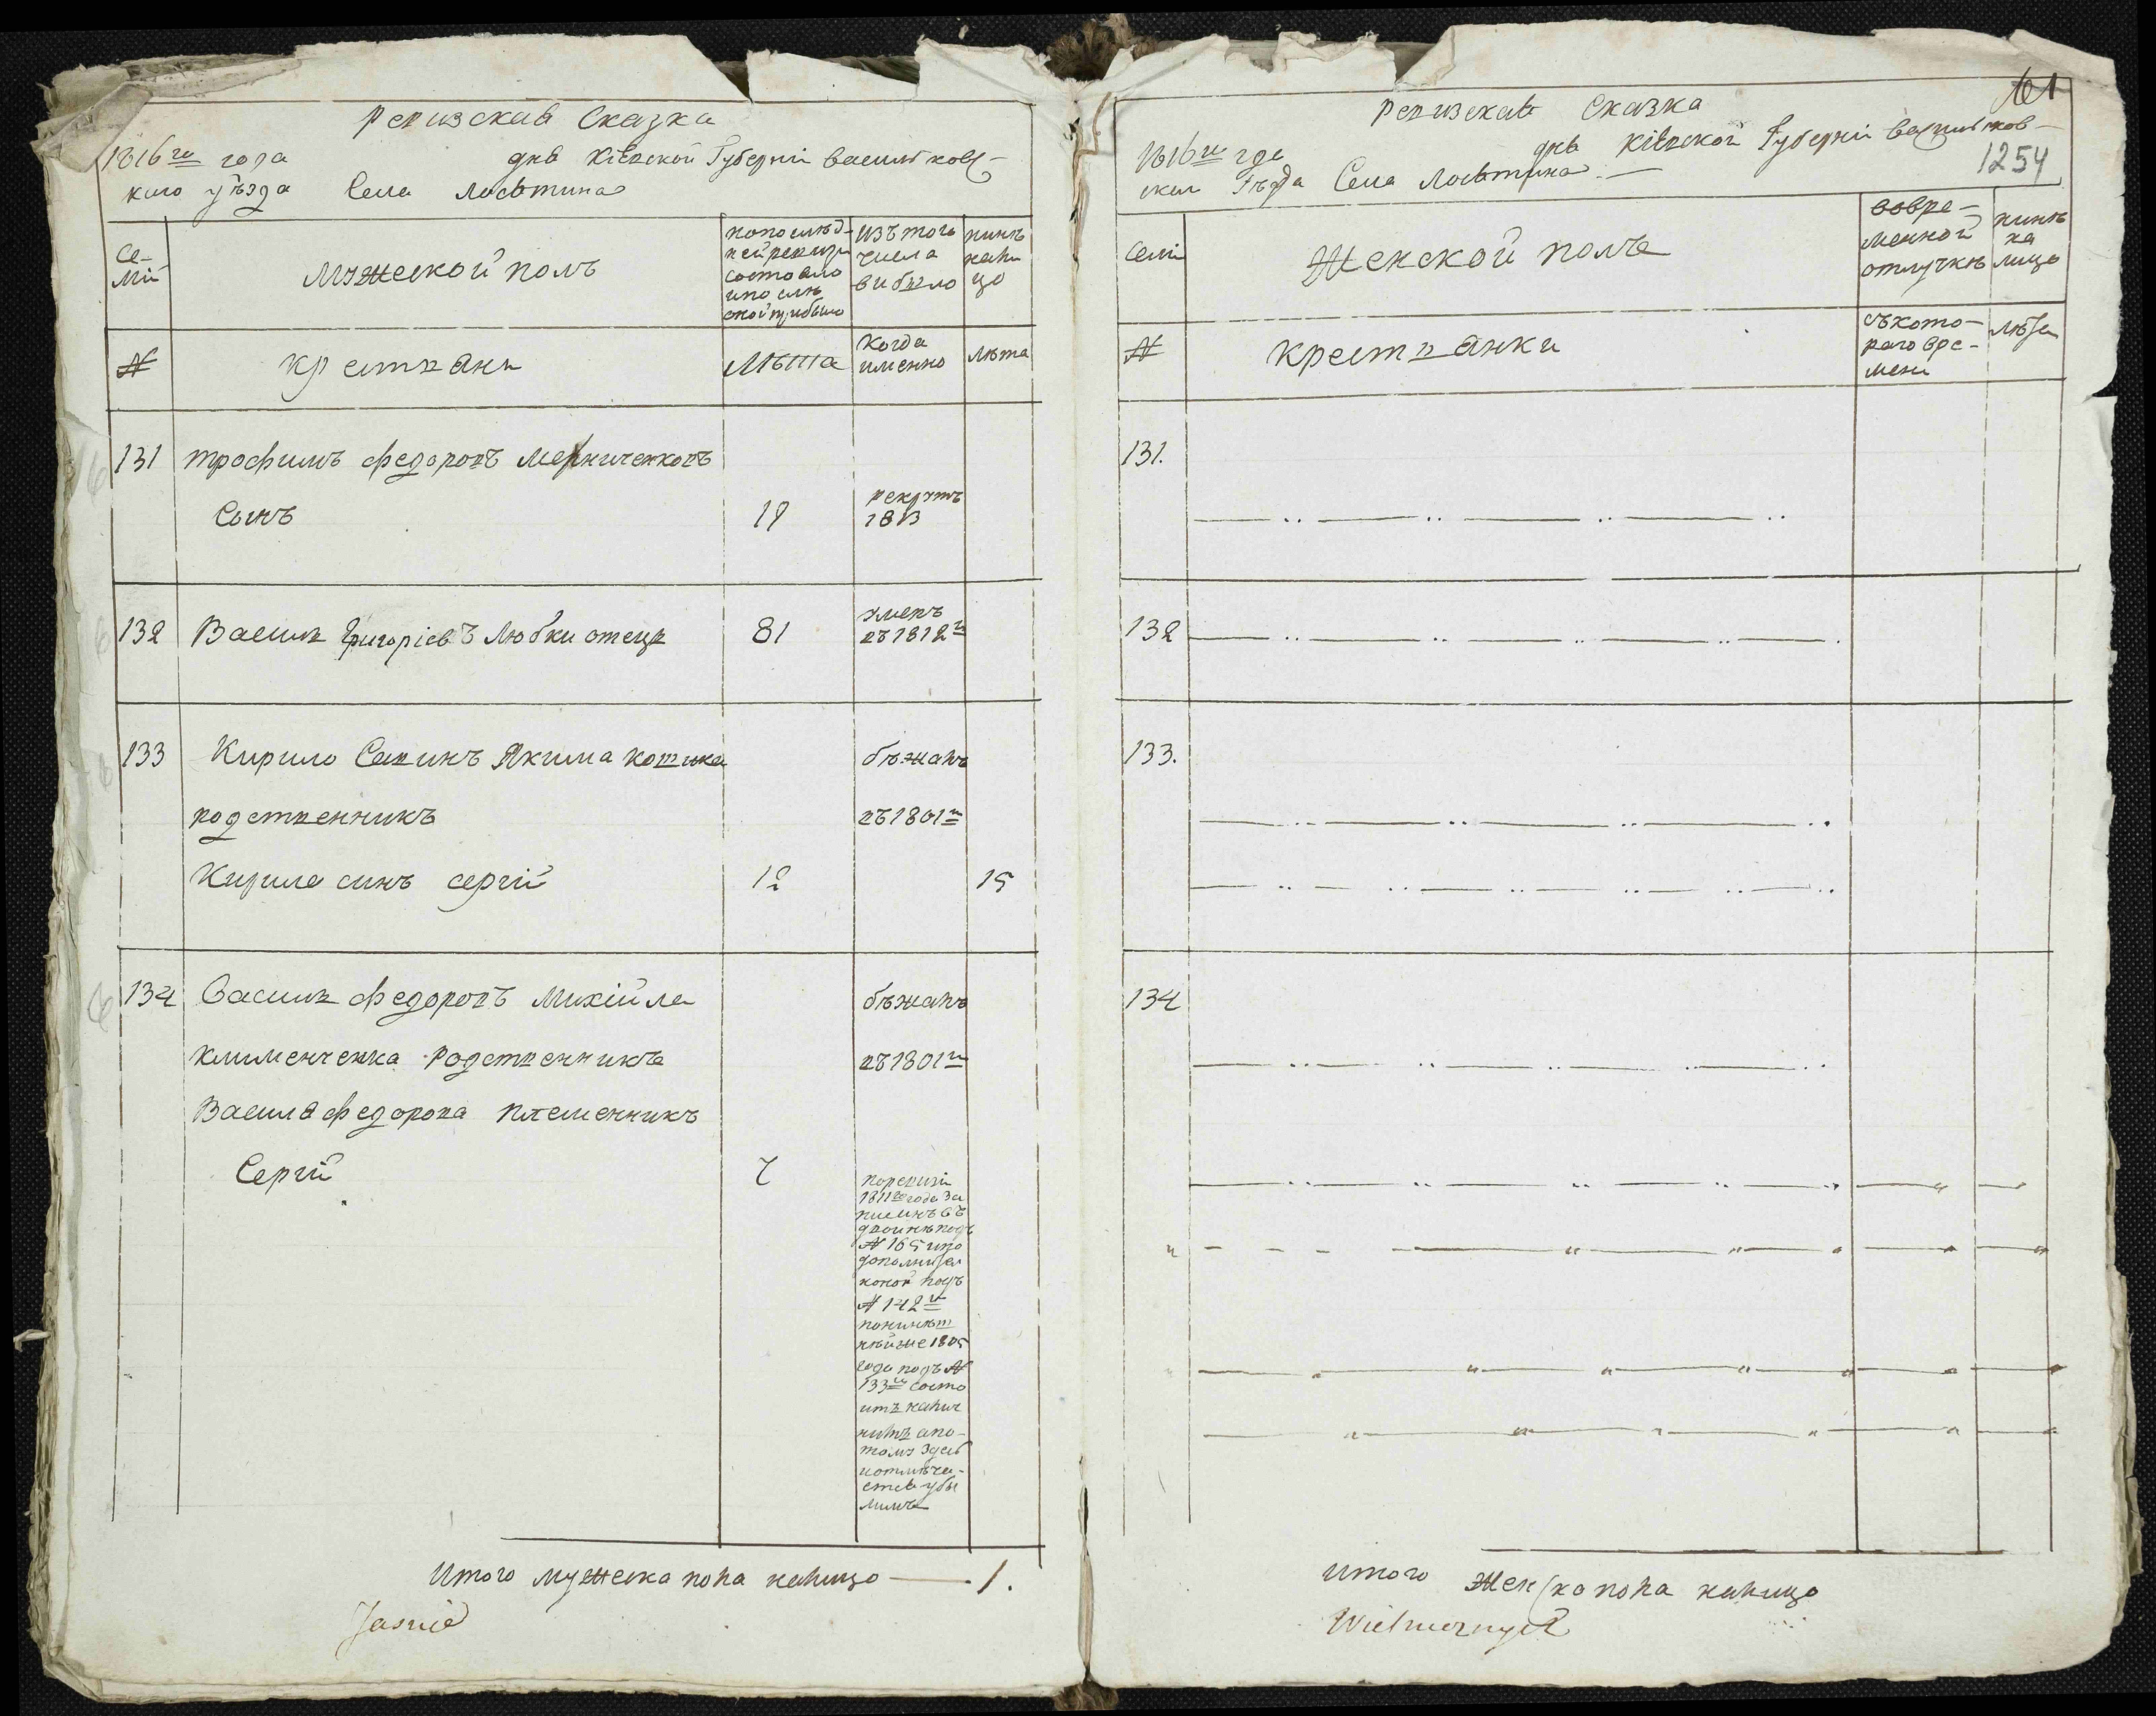 Ревизская Сказка
1816го года дня Кіевской Губерніи Васильковс-
каго уѣзда Села Лосятина
Се-
мій
Мужеской полъ
попослѣд-
ней ревизіи
состояло
ипослѣ
оной прибыло
изъ того
числа
выбыло
нинѣ
нали
цо
№
крестяни
Лѣта
когда
именно
лѣта
131 Трофимъ Федоровъ Мерниченковъ
Сынъ 19 рекрутъ
1813
132 Василь Григоріевъ Любки отець 81 умеръ
въ 1812м
133 Кирило Савинъ Якима котика бѣжалъ
родственникъ въ 1801м
Кирила синъ сергій 12 15
134 Василь Федоровъ Михійла бѣжалъ
клименченка Родственникъ въ 1801м
Василя Федорова племенникъ
Сергій 7 поревизіи
1811го года за
писанъ въ
двойнѣ подъ
№ 165 ипо
дополнител
ной подъ
№ 142м
1805
года подъ №
133м состо
итъ налич
нимъ а по-
тому здесь
иотмѣча-
ется убы
лимъ
Итого мужеска пола налицо — 1.
Jasnie
61
Ревизская Сказка
1816го года дня Кіевской Губерніи Васильков-
скаго уѣзда Села Лосятина
1254
Семьи
Женской полъ
вовре-
менной
отлучкѣ
нинѣ
на
лицо
№
крестянки
съкото-
раго вре-
мени
лѣта
131.
132
133.
134
Итого Женска пола налицо
Wielmoznych